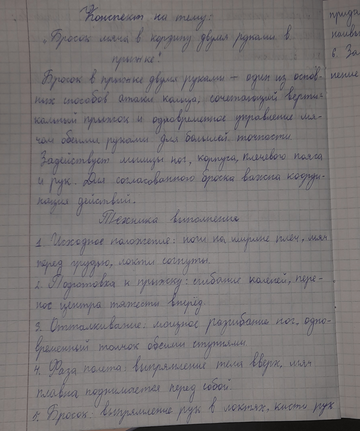 Конспект на тему:
„Бросок мяча в корзину двумя руками в
прыжке"
Бросок в прыжке двумя руками – один из основ-
ных способов атаки кольца, сочетающий верти-
кальный прыжок и одновременное управление мя-
чом обеими руками для большей точности
Задействует мышцы ног, корпуса, плечевого пояса
и рук. Для согласованного броска важна коорди-
нация действий.
Техника выполнения
1. Исходное положение: ноги на ширине плеч, мяч
перед грудью, локти согнуты.
2. Подготовка к прыжку: сгибание коленей, пере-
нос центра тяжести вперёд.
3. Отталкивание: мощное разгибание ног, одно-
временный толчок обеими ступнями.
4. Фаза полета: выпрямление тела вверх, мяч
плавно поднимается перед собой.
5. Бросок: выпрямление рук в локтях, кисти рук
6. За